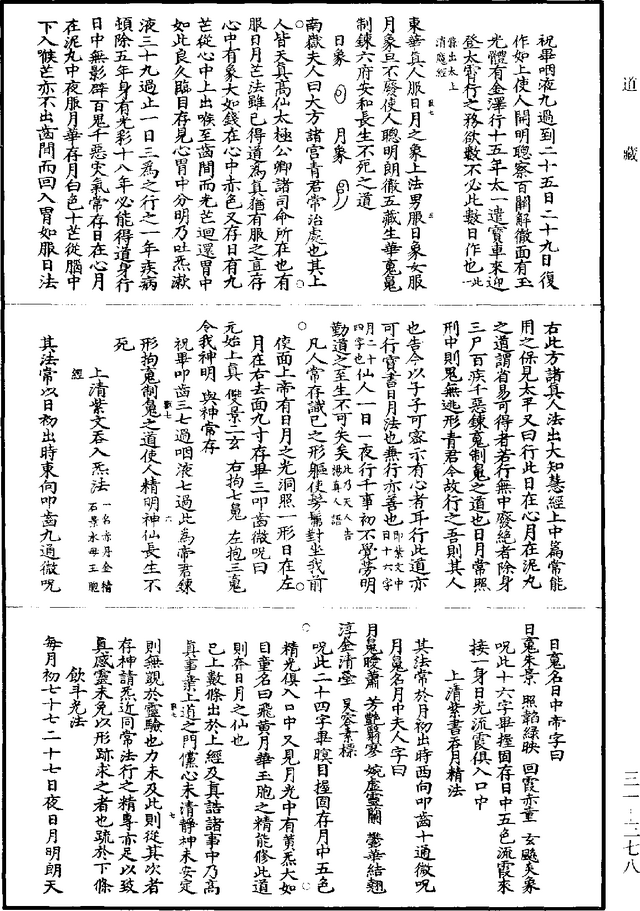 道藏
祝畢咽液九過到二十五日二十九日復
作如上使人開明聰察百關解徹面有玉
光體有金澤行十五年太一遣寶車來迎
登太霄行之務欲數不必此數日作也此
一條出太上
消魔經
東華真人服日月之象上法男服日象女服
月象日不廢使人聰明朗徹五藏生華魂魄
制鍊六府安和長生不死之道
日象 月象
南嶽夫人曰大方諸宮青君常治處也其上
人皆天真高仙太極公卿諸司命所在也有
服日月芒法雖已得道為真猶有服之直存
心中有象大如錢在心中赤色又存日有九
芒從心中上出喉至齒間而光芒迴還胃中
如此良久臨目存見心胃中分明乃吐炁漱
液三十九過止一日三為之行之一年疾病
頓除五年身有光彩十八年必能得道身行
日中無影辟百鬼千惡災氣常存日在心月
在泥丸中夜服月華存月白色十芒從腦中
下入喉芒亦不出齒間而回入胃如服日法
右此方諸真人法出大知慧經上中篇常能
用之保見太平又曰行此日在心月在泥丸
之道謂省易可得者若行無中廢絕者除身
三尸百疾千惡鍊魂制魄之道也日月常照
形中則鬼無逃形青君今故行之吾則其人
也告今以子子可密示有心者耳行此道亦
可行寶書日月法也兼行亦善也即紫文中
日十六字
月二十
四字也仙人一日一夜行千事初不覺勞明
勤道之至生不可失矣此乃天告
湯真人語
凡人常存識己之形軀使髣髴對坐我前
使面上帝有日月之光洞照一形日在左
月在右去面九寸存畢三叩齒微呪曰
元始上真 傑景二玄 右拘七魄 左抱三魂
令我神明 與神常存
祝畢叩齒三七過咽液七過此為帝君鍊
形拘魂制魄之道使人精明神仙長生不
死
上清紫文吞入炁法一名赤丹金精
石景水母玉胞
經
其法常以日初出時東向叩齒九通微呪
日魂名日中帝字曰
日魂朱景 照韜綠映 回霞赤童 玄飈炎象
呪此十六字畢握固存日中五色流霞來
接一身日光流霞俱入口中
上清紫書吞月精法
其法常於月初出時西向叩齒十通微呪
月魄名月中夫人字曰
月魄曖蕭 芬艷翳寥 婉虛靈蘭 鬱華結翹
淳金清瑩 炅容素標
呪此二十四字畢瞑目握固存月中五色
精光俱入口中又見月光中有黃炁大如
目童名曰飛黃月華玉胞之精能修此道
則奔日月之仙也
已上數條出於上經及真誥諸事中乃高
真事業上道之門儻心未清靜神未安定
則無覩於靈驗也力未及此則從其次者
存神請炁近同常法行之精專亦足以致
真感靈未免以形跡求之者也疏於下條
飲斗光法
每月初七十七二十七日夜日月明朗天
三一—二七八